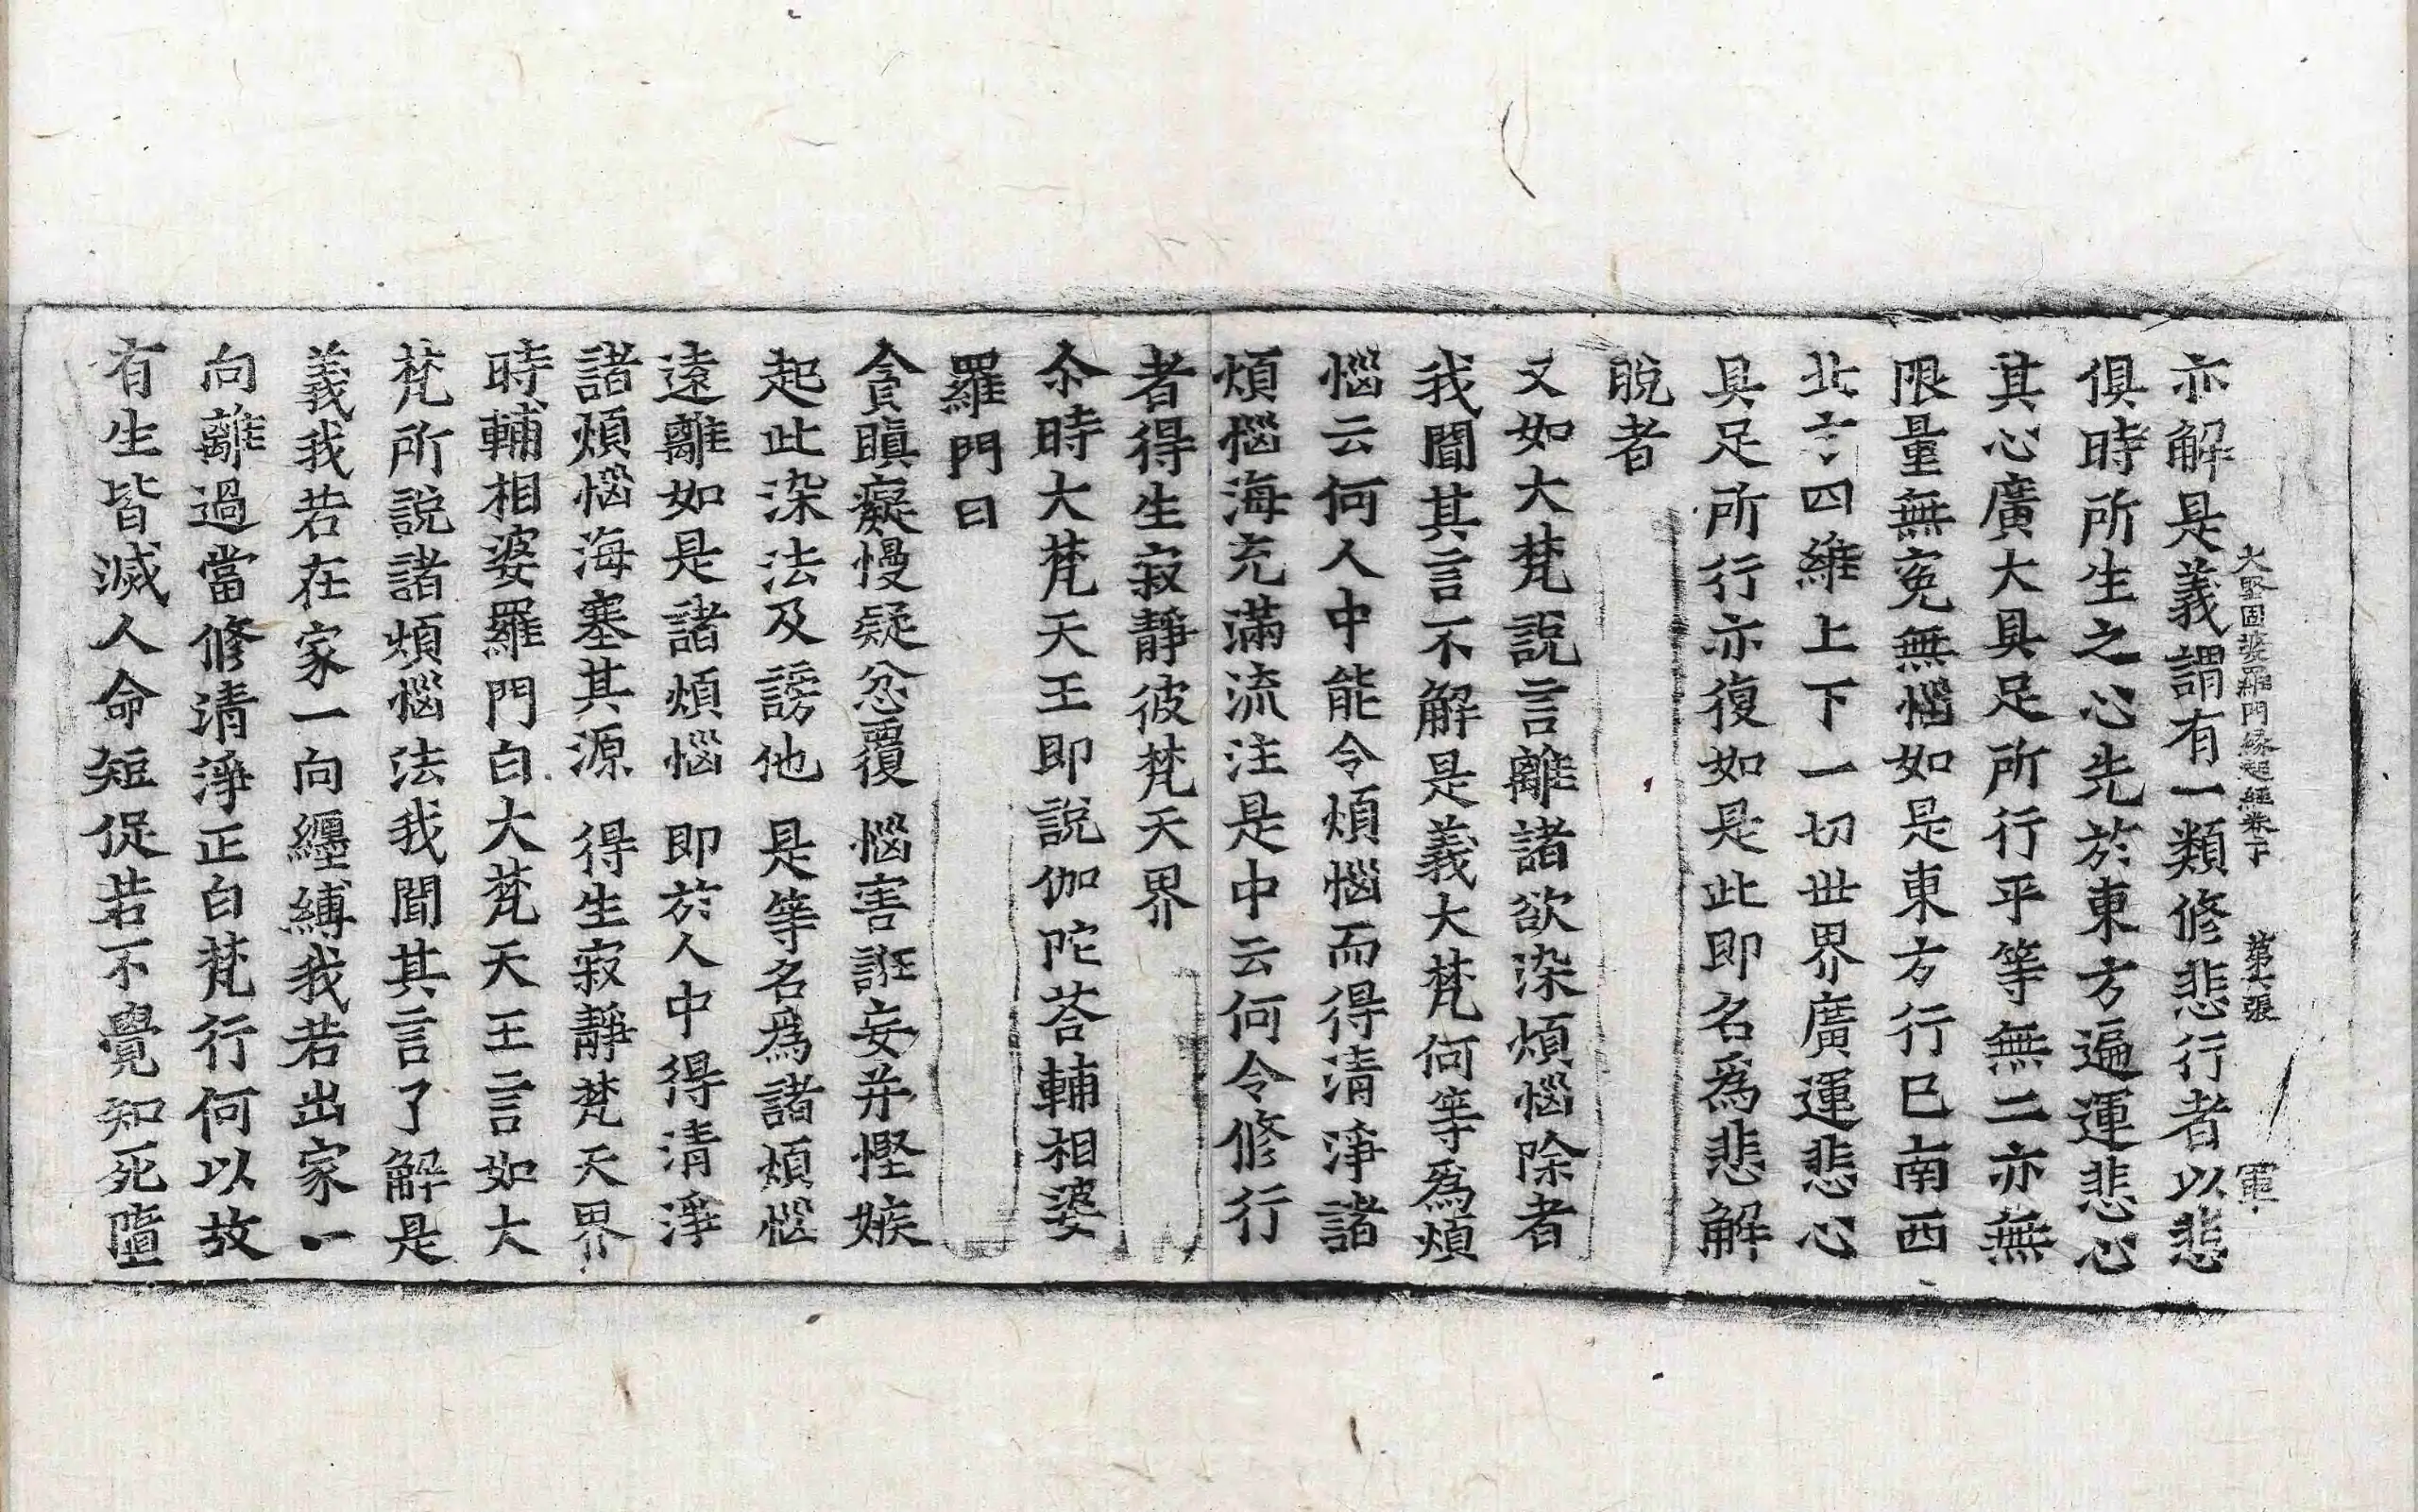 大堅固婆羅門緣起經卷下 第六張 軍
亦解是義謂有一類修悲行者以悲
俱時所生之心先於東方遍運悲心
其心廣大具足所行平等無二亦無
限量無𡨚無惱如是東方行已南西
北方四維上下一切世界廣運悲心
具足所行亦復如是此即名為悲解
脫者
又如大梵說言離諸欲染煩惱除者
我聞其言不解是義大梵何等為煩
惱云何人中能令煩惱而得清淨諸
煩惱海充滿流注是中云何令修行
者得生寂靜彼梵天界
尒時大梵天王即說伽陀荅輔相婆
羅門曰
貪瞋癡慢疑忿覆 惱害誑妄并慳嫉
起此染法及謗他 是等名為諸煩惱
遠離如是諸煩惱 即於人中得清淨
諸煩惱海塞其源 得生寂靜梵天界
時輔相婆羅門白大梵天王言如大
梵所說諸煩惱法我聞其言了解是
義我若在家一向纏縛我若出家一
向離過當修清淨正白梵行何以故
有生皆滅人命短促若不覺知死墮